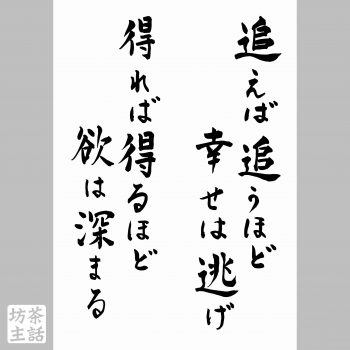 追えば追うほど
幸せは逃げ
得れば得るほど
欲は深まる
茶話
坊主